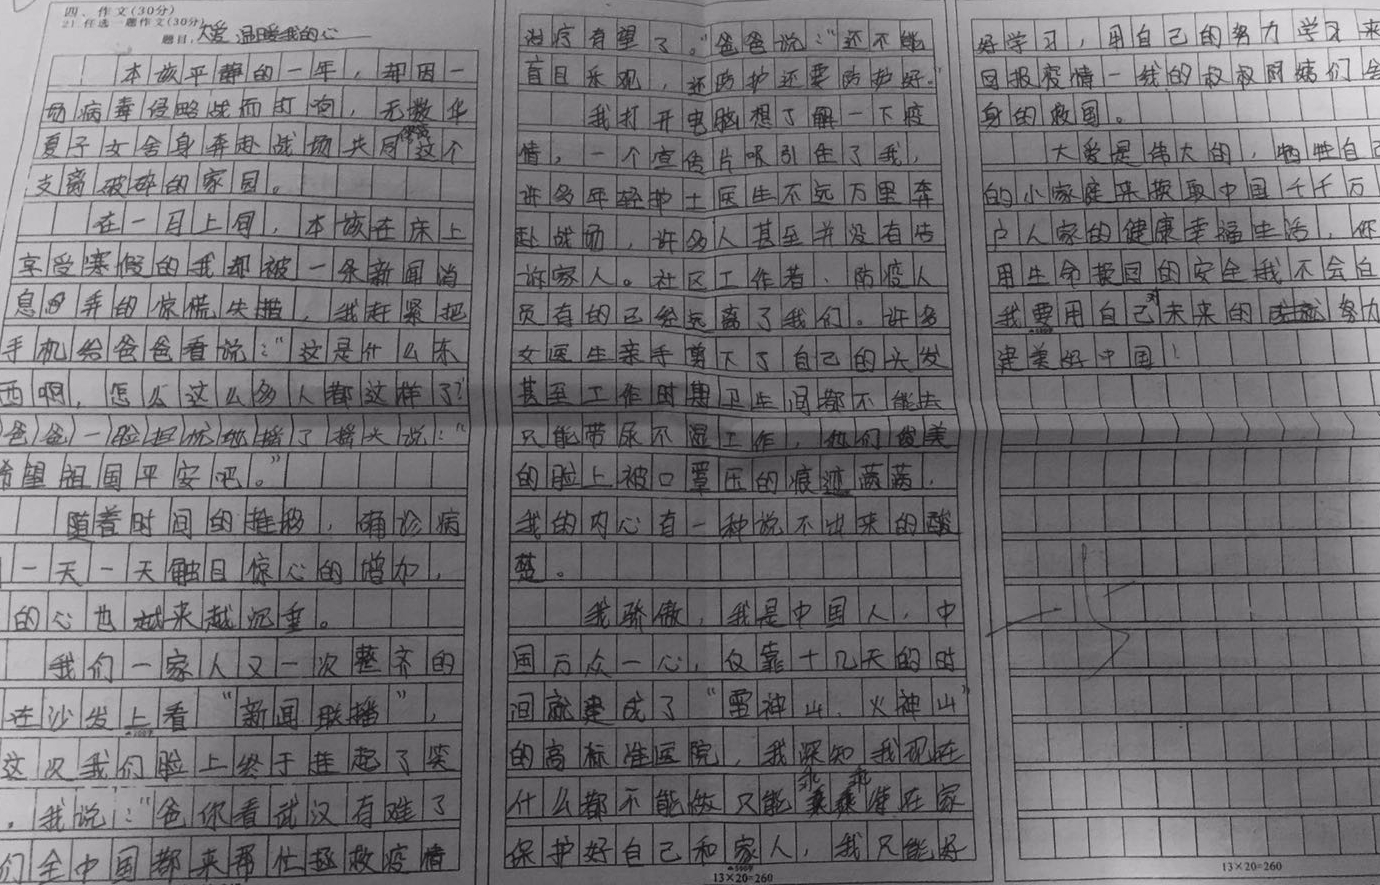 四、作文(30分)
21.任选一题作文(30分)
题目:大爱温暖我的心
本该平静的一年，却因一
场病毒侵略战而打响，无数华
夏子女舍身奔赴战场共同这个
支离破碎的家园。
在一月上旬，本该在床上
享受寒假的我却被一条新闻消
息弄的惊慌失措，我赶紧把
手机给爸爸看说：“这是什么东
西啊，怎么这么多人都这样了?
爸爸一脸担忧地摇了摇头说：“
希望祖国平安吧。”
随着时间的推移，确诊病
一天一天触目惊心的增加，
的心也越来越沉重。
我们一家人又一次整齐的
在沙发上看“新闻联播”，
这次我们脸上终于挂起了笑
，我说：“爸你看武汉有难了
们全中国都来帮忙拯救疫情
治疗有望了。”爸爸说：“还不能
盲目乐观，还防护还要防护好。”
我打开电脑想了解一下疫
情，一个宣传片吸引住了我，
许多年轻护士医生不远万里奔
赴战场，许多人甚至并没有告
诉家人。社区工作者、防疫人
员有的已经远离了我们。许多
女医生亲手剪下了自己的头发
甚至工作时期卫生间都不能去
只能带尿不湿工作，他们俊美
的脸上被口罩压的痕迹满满，
我的内心有一种说不出来的酸
楚。
我骄傲，我是中国人，中
国万众一心，仅靠十几天的时
间就建成了“雷神山、火神山”
的高标准医院，我深知我现在
什么都不能做只能乖乖准在家
保护好自己和家人，我只能好
13×20=260
好学习，用自己的努力学习来
回报疫情一线的叔叔阿姨们舍
身的救国。
大爱是伟大的，牺牲自己
的小家庭来换取中国千千万
户人家的健康幸福生活，你
用生命换回的安全我不会白
我要用自己对未来的努力
建美好中国！
13×20=260